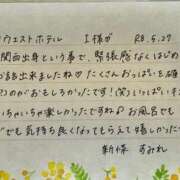 ウエストホテル I様が R8.5.27
関西出身という事で、緊張感なくはじめ
お話も出来ましたね♡たくさんおっぱいを
つのがおもしろかったです！(笑)いっぱい
いちゃいちゃ楽しかったですね♪お風呂でも
でも気持ち良くなってもらえて嬉しかった
新條 すみれ